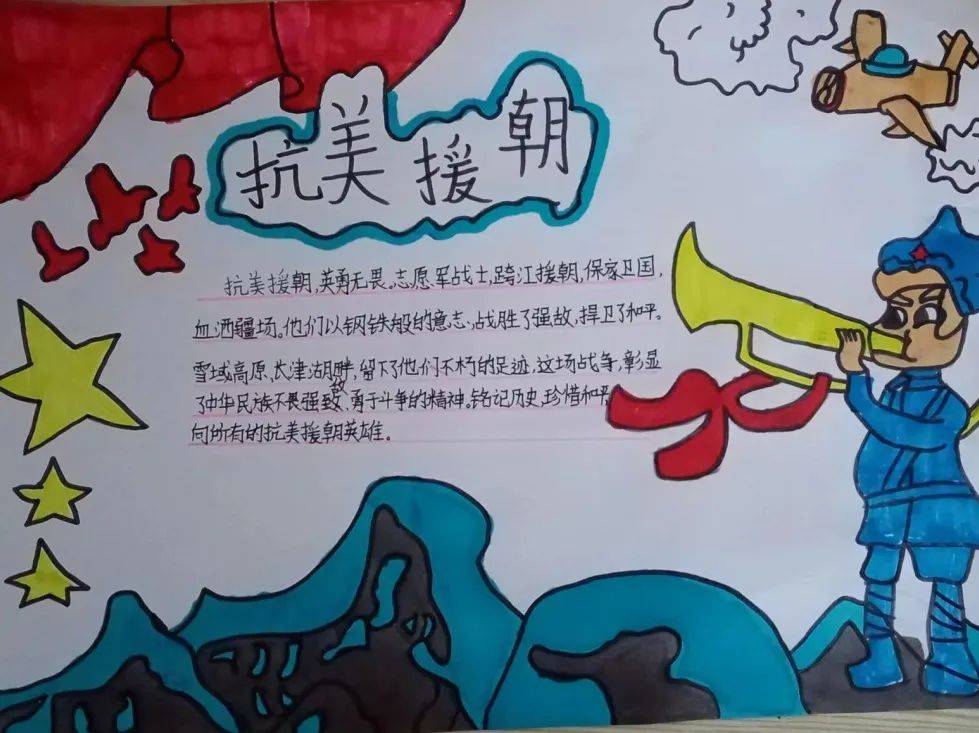 抗美援朝
抗美援朝,英勇无畏。志愿军战士,跨江援朝,保家卫国,
血洒疆场。他们以钢铁般的意志,战胜了强敌,捍卫了和平。
雪域高原、长津湖畔,留下了他们不朽的足迹。这场战争,彰显
了中华民族不畏强敌、勇于斗争的精神。铭记历史,珍惜和平
向所有的抗美援朝英雄。